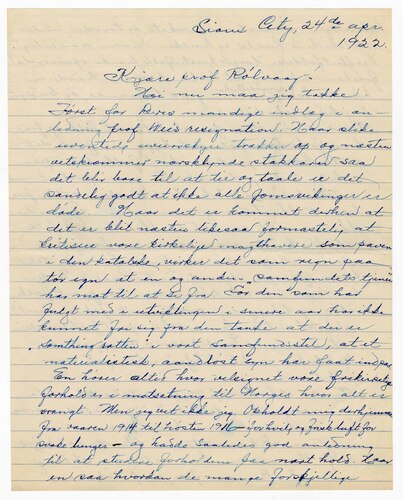 Sioux City, 24de apr.
1922.
Kjære prof Rølvaag!
Hei nu maa jeg takke
Først for Deres mandige indlæg i an-
ledning prof Wee's resignation. Naar slike
uventede uveirsskyer trækker op og næsten
vetskræmmer norskbygde stakkarer saa
det blir bare til at tie og taale er det
sandelig godt at ikke alle fornsvikinger er
døde. Naar det er kommet derhen at
det er blit næsten likesaa formastelig at
kritisere vore kirkelige magthavere som paven
i den katolske, virker det som regn paa
tør egn at en og anden "samfundets tjener"
har mot til at si fra. For den som har
fulgt med i utviklingen i senere aar har ikke
kunnet fri seg fra den tanke at der er
"something rotten" i vort samfundsstel, at et
materialistisk, aandløst syn har faat indpas
En hører altid hvor velsignet vore frikirkelige
forhold er i motsetning til Norges hvor alt er
vrangt. Men jeg vet ikke jeg. Opholdt mig derhjemme
fra vaaren 1914 til høsten 1916 – for hvile og frisk luft for
svake lunger – og hadde saaledes god anledning
til at studere forholdene paa nært hold. Naar
en saa hvordan de mange forskjellige